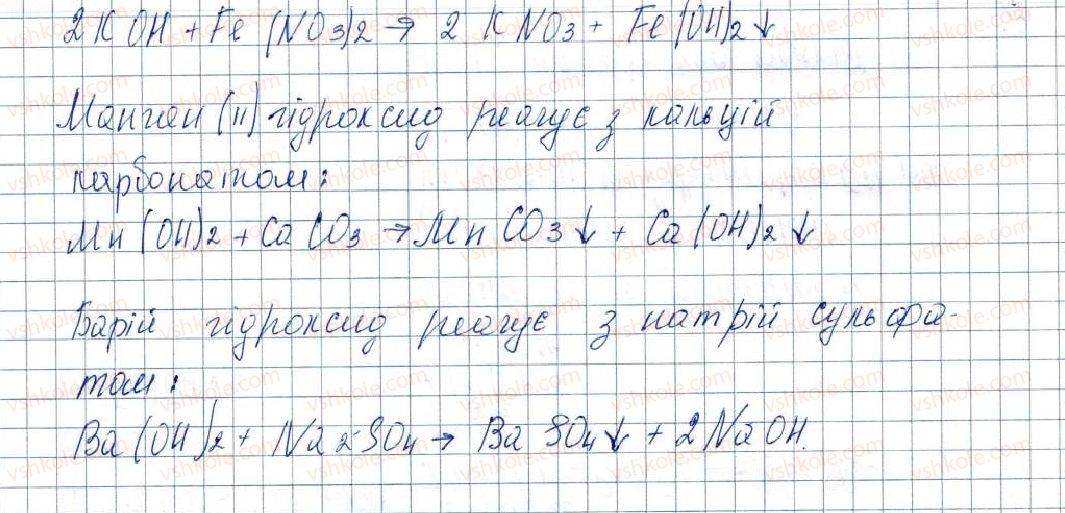 2KOH + Fe(NO3)2 → 2KNO3 + Fe(OH)2↓
Манган (II) гідроксид реагує з кальцій
карбонатом:
Mn(OH)2 + CaCO3 → MnCO3↓ + Ca(OH)2↓
Барій гідроксид реагує з натрій сульфа-
том:
Ba(OH)2 + Na2SO4 → BaSO4↓ + 2NaOH.